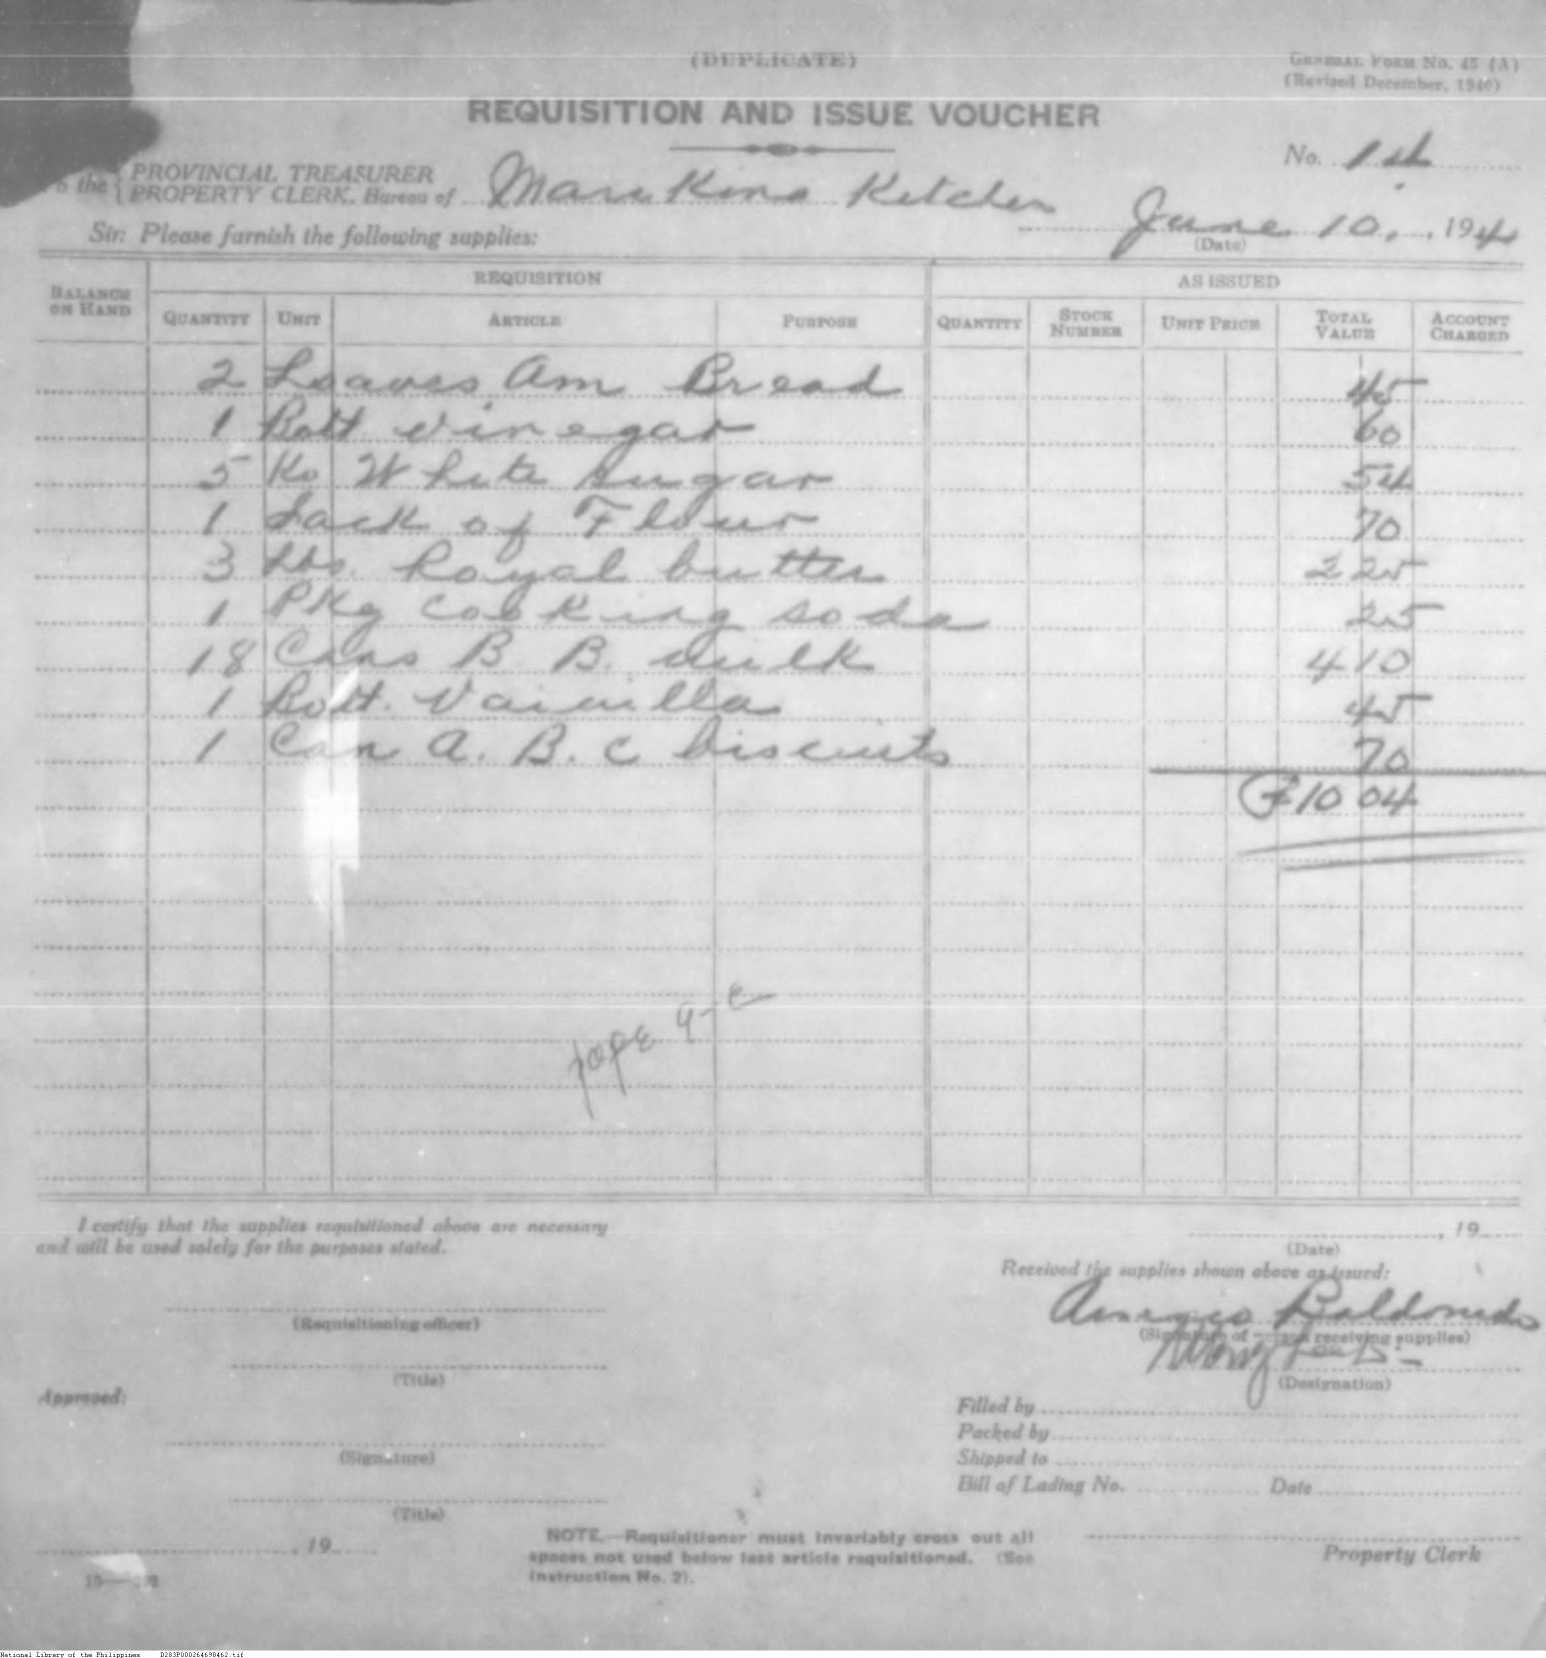 (DUPLICATE)
GENERAL FORM No. 45 (A)
(Revised December, 1940)
REQUISITION AND ISSUE VOUCHER
No. 1st
the PROVINCIAL TREASURER
PROPERTY CLERK, Bureau of Marikina Kitchen
June 10, 194
(Date)
Sir: Please furnish the following supplies:
BALANCE ON HAND
REQUISITION
AS ISSUED
QUANTITY UNIT ARTICLE PURPOSE QUANTITY STOCK NUMBER UNIT PRICE TOTAL VALUE ACCOUNT CHARGED
2 Loaves Am Bread 45
1 Bott vinegar 60
5 Ko White sugar 54
1 Sack of Flour 70
3 Lbs. Royal butter 2 25
1 Pkg cooking soda 25
18 Cans B B. milk 4 10
1 Bott. Vainilla 45
1 Can A. B. C biscuits 70
₱10 04
I certify that the supplies requisitioned above are necessary
and will be used solely for the purposes stated.
, 19
(Date)
Received the supplies shown above as issued:
Baldonado
(Requisitioning officer)
(Signature of person receiving supplies)
(Title)
(Designation)
Approved:
Filled by
Packed by
(Signature)
Shipped to
Bill of Lading No. Date
(Title)
, 19
NOTE.—Requisitioner must invariably cross out all
spaces not used below last article requisitioned. (See
instruction No. 2).
Property Clerk
National Library of the Philippines D283P000264698462.tif